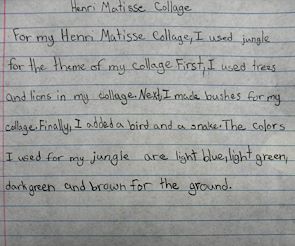 Henri Matisse Collage
For my Henri Matisse Collage, I used jungle
for the theme of my collage First, I used trees
and lions in my collage. Next, I made bushes for my
collage. Finally, I added a bird and a snake. The colors
I used for my jungle are light blue, light green,
dark green and brown for the ground.